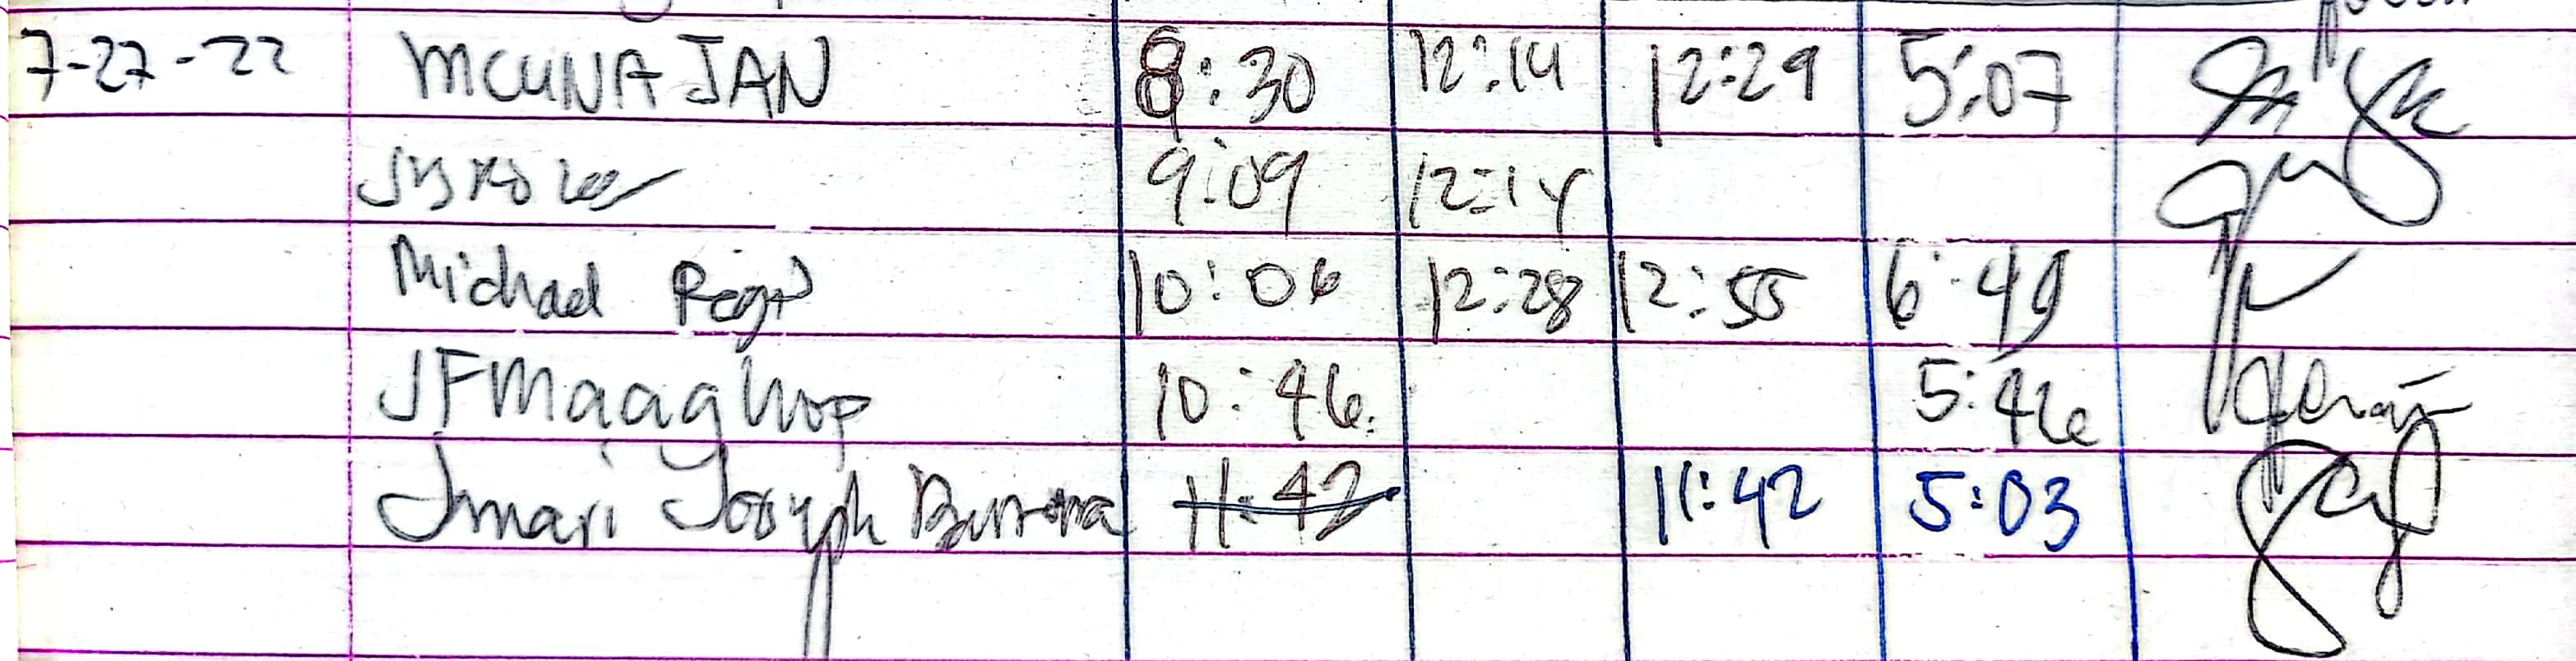 7-27-22 MCUNAJAN 8:30 12:14 12:29 5:07
9:09 12:14
Michael 10:06 12:28 12:55 6:49
JFMaaghop 10:46 5:46
Jmari Joseph 11:42 11:42 5:03